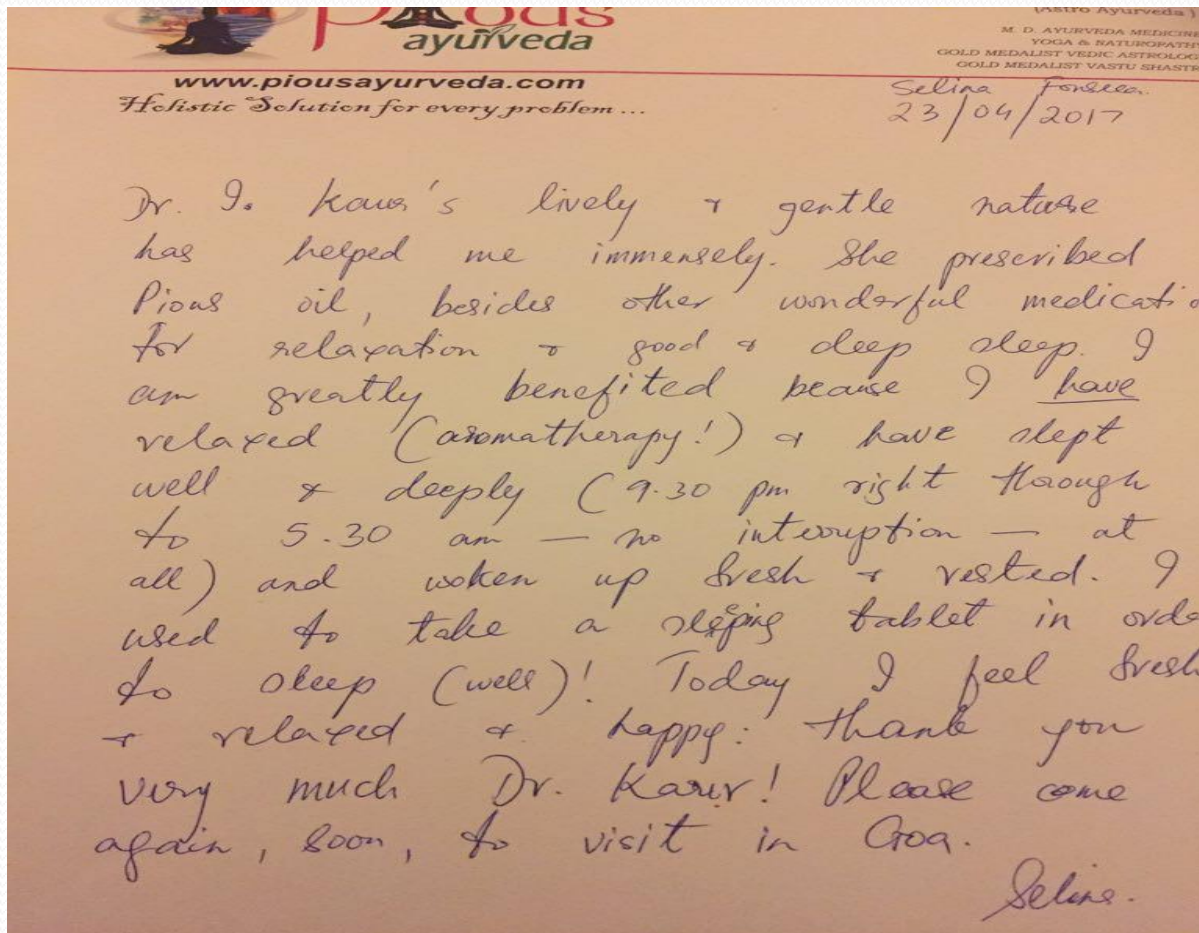 Pious
ayurveda
(Astro Ayurveda)
M. D. AYURVEDA MEDICINE
YOGA & NATUROPATH
GOLD MEDALIST VEDIC ASTROLOG
GOLD MEDALIST VASTU SHASTR
www.piousayurveda.com
Holistic Solution for every problem ...
Selina Fonseca.
23/04/2017
Dr. I. Kaur's lively & gentle nature
has helped me immensely. She prescribed
Pious oil, besides other wonderful medicatio
for relaxation & good & deep sleep. I
am greatly benefited because I have
relaxed (aromatherapy!) & have slept
well & deeply (9.30 pm right through
to 5.30 am — no interruption — at
all) and woken up fresh & rested. I
used to take a sleeping tablet in orde
to sleep (well)! Today I feel fresh
& relaxed & happy. Thank you
very much Dr. Kaur! Please come
again, soon, to visit in Goa.
Selina.